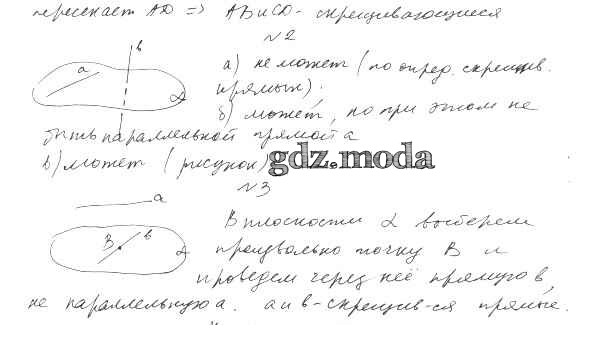 пересекает AD => AB и CD - скрещивающиеся
N2
a) не может (по опред. скрещив. прямых).
б) может, но при этом не
быть параллельной прямой a
в) может (рисунок)
gdz.moda
a
в
α
N3
a
В плоскости α выберем
произвольно точку B и
проведем через неё прямую в,
не параллельную a. a и в - скрещив-ся прямые.
B
в
α